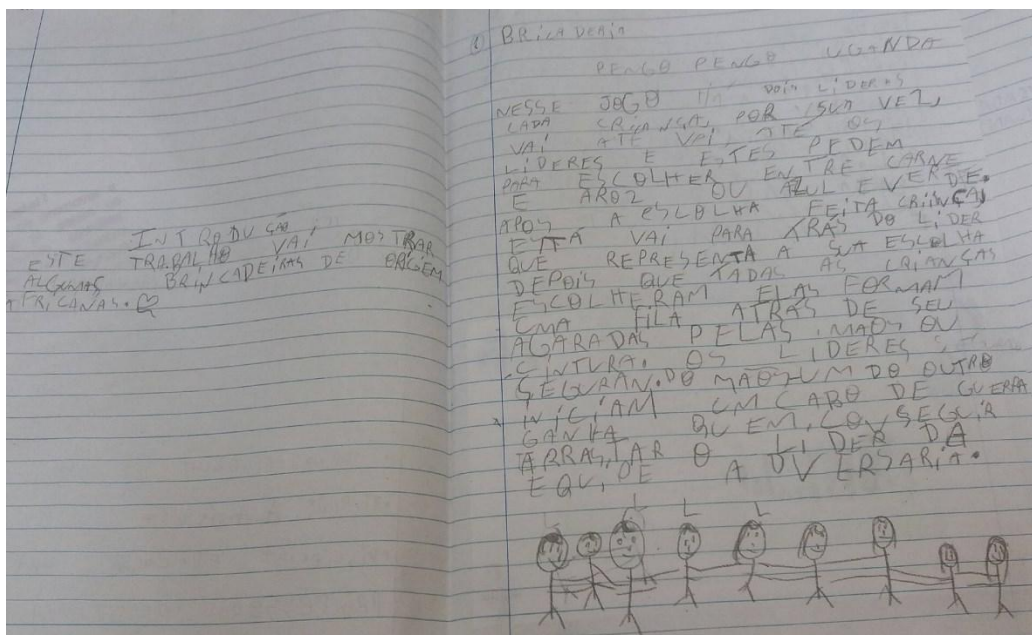 INTRODUSÃO
ESTE TRABALHO VAI MOSTRAR
ALGUMAS BRINCADEIRAS DE ORIGEM
AFRICANAS.
① BRICADERIA
PENGO PENGO UGANDA
NESSE JOGO DOIS LIDERES
CADA CRIANÇA, POR SUA VEZ,
VAI ATE VAI ATE OS
LIDERES E ESTES PEDEM
PARA ESCOLHER ENTRE CARNE
E AROZ OU AZUL E VERDE.
APOS A ESCOLHA FEITA CRIANÇA,
ESTA VAI PARA TRAS DO LIDER
QUE REPRESENTA A SUA ESCOLHA
DEPOIS QUE TADAS AS CRIANÇAS
ESCOLHERAM ELAS FORMAM
UMA FILA ATRAS DE SEU
AGARADAS PELAS MAOS OU
CINTURA. OS LIDERES
SEGURAN.DO MAOS UM DO OUTRO
INICIAM UM CABO DE GUERRA
GANHA QUEM, CONSEGUIR
ARRASTAR O LIDER DA
EQUIPE ADVERSARIA.
L L L